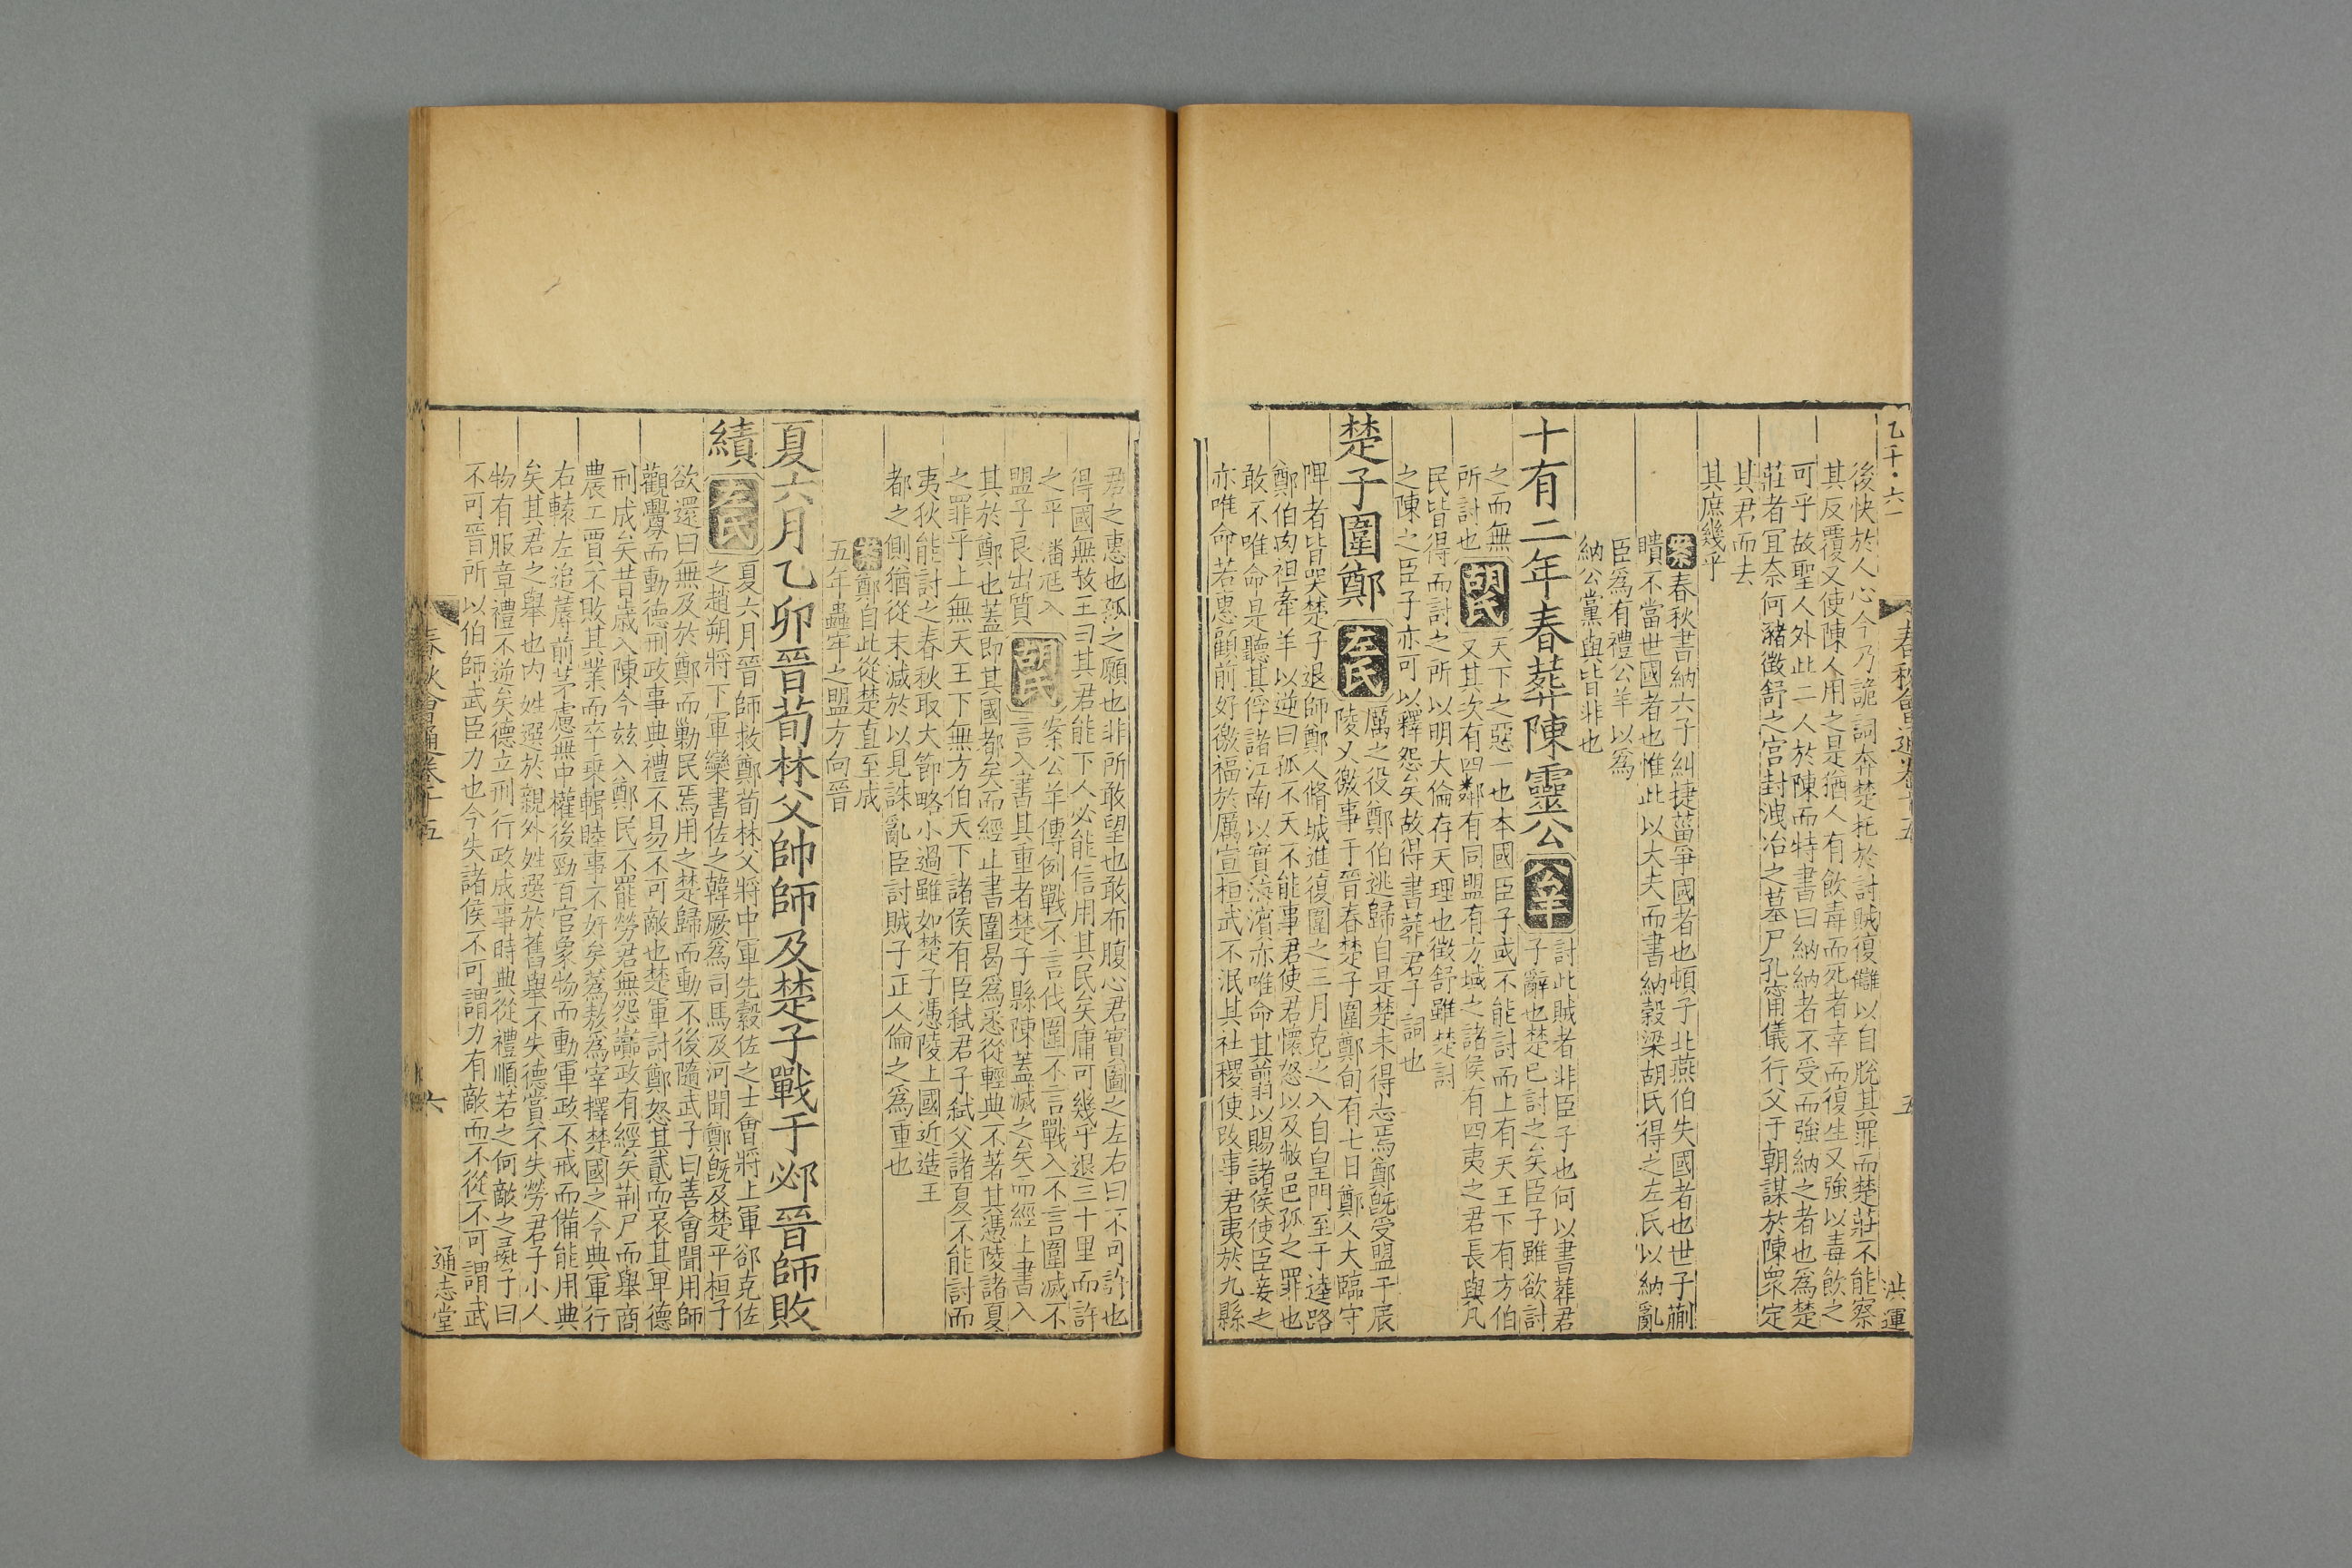 乙千·六一
春秋會通卷十五
五
洪運
後快於人心今乃詭詞奔楚托於討賊復讎以自脫其罪而楚莊不能察
其反覆又使陳人用之是猶人有飲毒而死者幸而復生又強以毒飲之
可乎故聖人外此二人於陳而特書曰納納者不受而強納之者也為楚
莊者冝奈何瀦徵舒之宫封洩冶之墓尸孔甯儀行父于朝謀於陳衆定
其君而去
其庶幾乎
案春秋書納六子糾捷菑爭國者也頓子北燕伯失國者也世子蒯
聵不當世國者也惟此以大夫而書納穀梁胡氏得之左氏以納亂
臣爲有禮公羊以爲
納公黨與皆非也
十有二年春葬陳靈公公羊討此賊者非臣子也何以書葬君
子辭也楚巳討之矣臣子雖欲討
之而無
所討也胡氏天下之惡一也本國臣子或不能討而上有天王下有方伯
又其次有四鄰有同盟有方域之諸侯有四夷之君長與凡
民皆得而討之所以明大倫存天理也徵舒雖楚討
之陳之臣子亦可以釋怨矣故得書葬君子詞也
楚子圍鄭左氏厲之役鄭伯逃歸自是楚未得志焉鄭旣受盟于辰
陵又徼事于晉春楚子圍鄭旬有七日鄭人大臨守
陴者皆哭楚子退師鄭人脩城進復圍之三月克之入自皇門至于逵路
鄭伯肉袒牽羊以逆曰孤不天不能事君使君懷怒以及敝邑孤之罪也
敢不唯命是聽其俘諸江南以實海濱亦唯命其翦以賜諸侯使臣妾之
亦唯命若惠顧前好徼福於厲宣桓武不泯其社稷使改事君夷於九縣
君之惠也孤之願也非所敢望也敢布腹心君實圖之左右曰不可許也
得國無赦王曰其君能下人必能信用其民矣庸可幾乎退三十里而許
之平潘尫入
盟子良出質胡氏案公羊傳例戰不言伐圍不言戰入不言圍滅不
言入書其重者楚子縣陳蓋滅之矣而經止書入
其於鄭也蓋即其國都矣而經止書圍曷爲悉從輕典不著其憑陵諸夏
之罪乎上無天王下無方伯天下諸侯有臣弑君子弑父諸夏不能討而
夷狄能討之春秋取大節略小過雖如楚子憑陵上國近造王
都之側猶從末減於以見誅亂臣討賊子正人倫之爲重也
案鄭自此從楚直至成
五年蟲牢之盟方向晉
夏六月乙卯晉荀林父帥師及楚子戰于邲晉師敗
績左氏夏六月晉師救鄭荀林父將中軍先縠佐之士會將上軍郤克佐
之趙朔將下軍欒書佐之韓厥爲司馬及河聞鄭旣及楚平桓子
欲還曰無及於鄭而勦民焉用之楚歸而動不後隨武子曰善會聞用師
觀釁而動德刑政事典禮不易不可敵也楚軍討鄭怒其貳而哀其卑德
刑成矣昔歲入陳今兹入鄭民不罷勞君無怨讟政有經矣荆尸而舉商
農工賈不敗其業而卒乗輯睦事不奸矣蒍敖爲宰擇楚國之令典軍行
右轅左追蓐前茅慮無中權後勁百官象物而動軍政不戒而備能用典
矣其君之舉也内姓選於親外姓選於舊舉不失德賞不失勞君子小人
物有服章禮不逆矣德立刑行政成事時典從禮順若之何敵之彘子曰
不可晉所以伯師武臣力也今失諸侯不可謂力有敵而不從不可謂武
春秋會通卷十五
六
通志堂